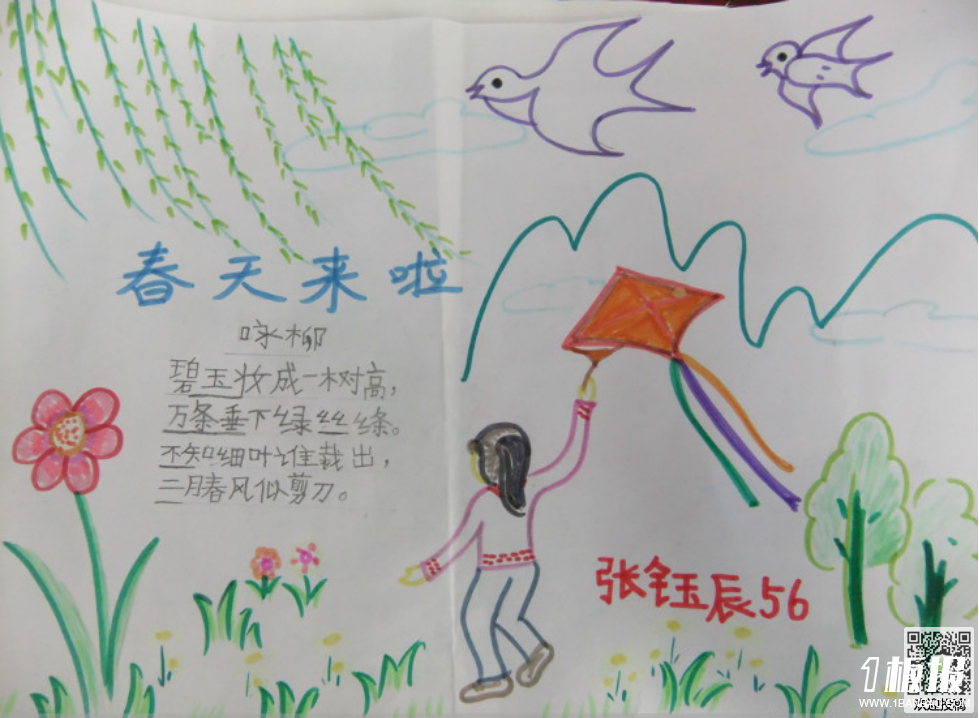 春天来啦
咏柳
碧玉妆成一树高，
万条垂下绿丝绦。
不知细叶谁裁出，
二月春风似剪刀。
张钰辰56
1板报
WWW.1BANBAO.COM
欢迎投稿